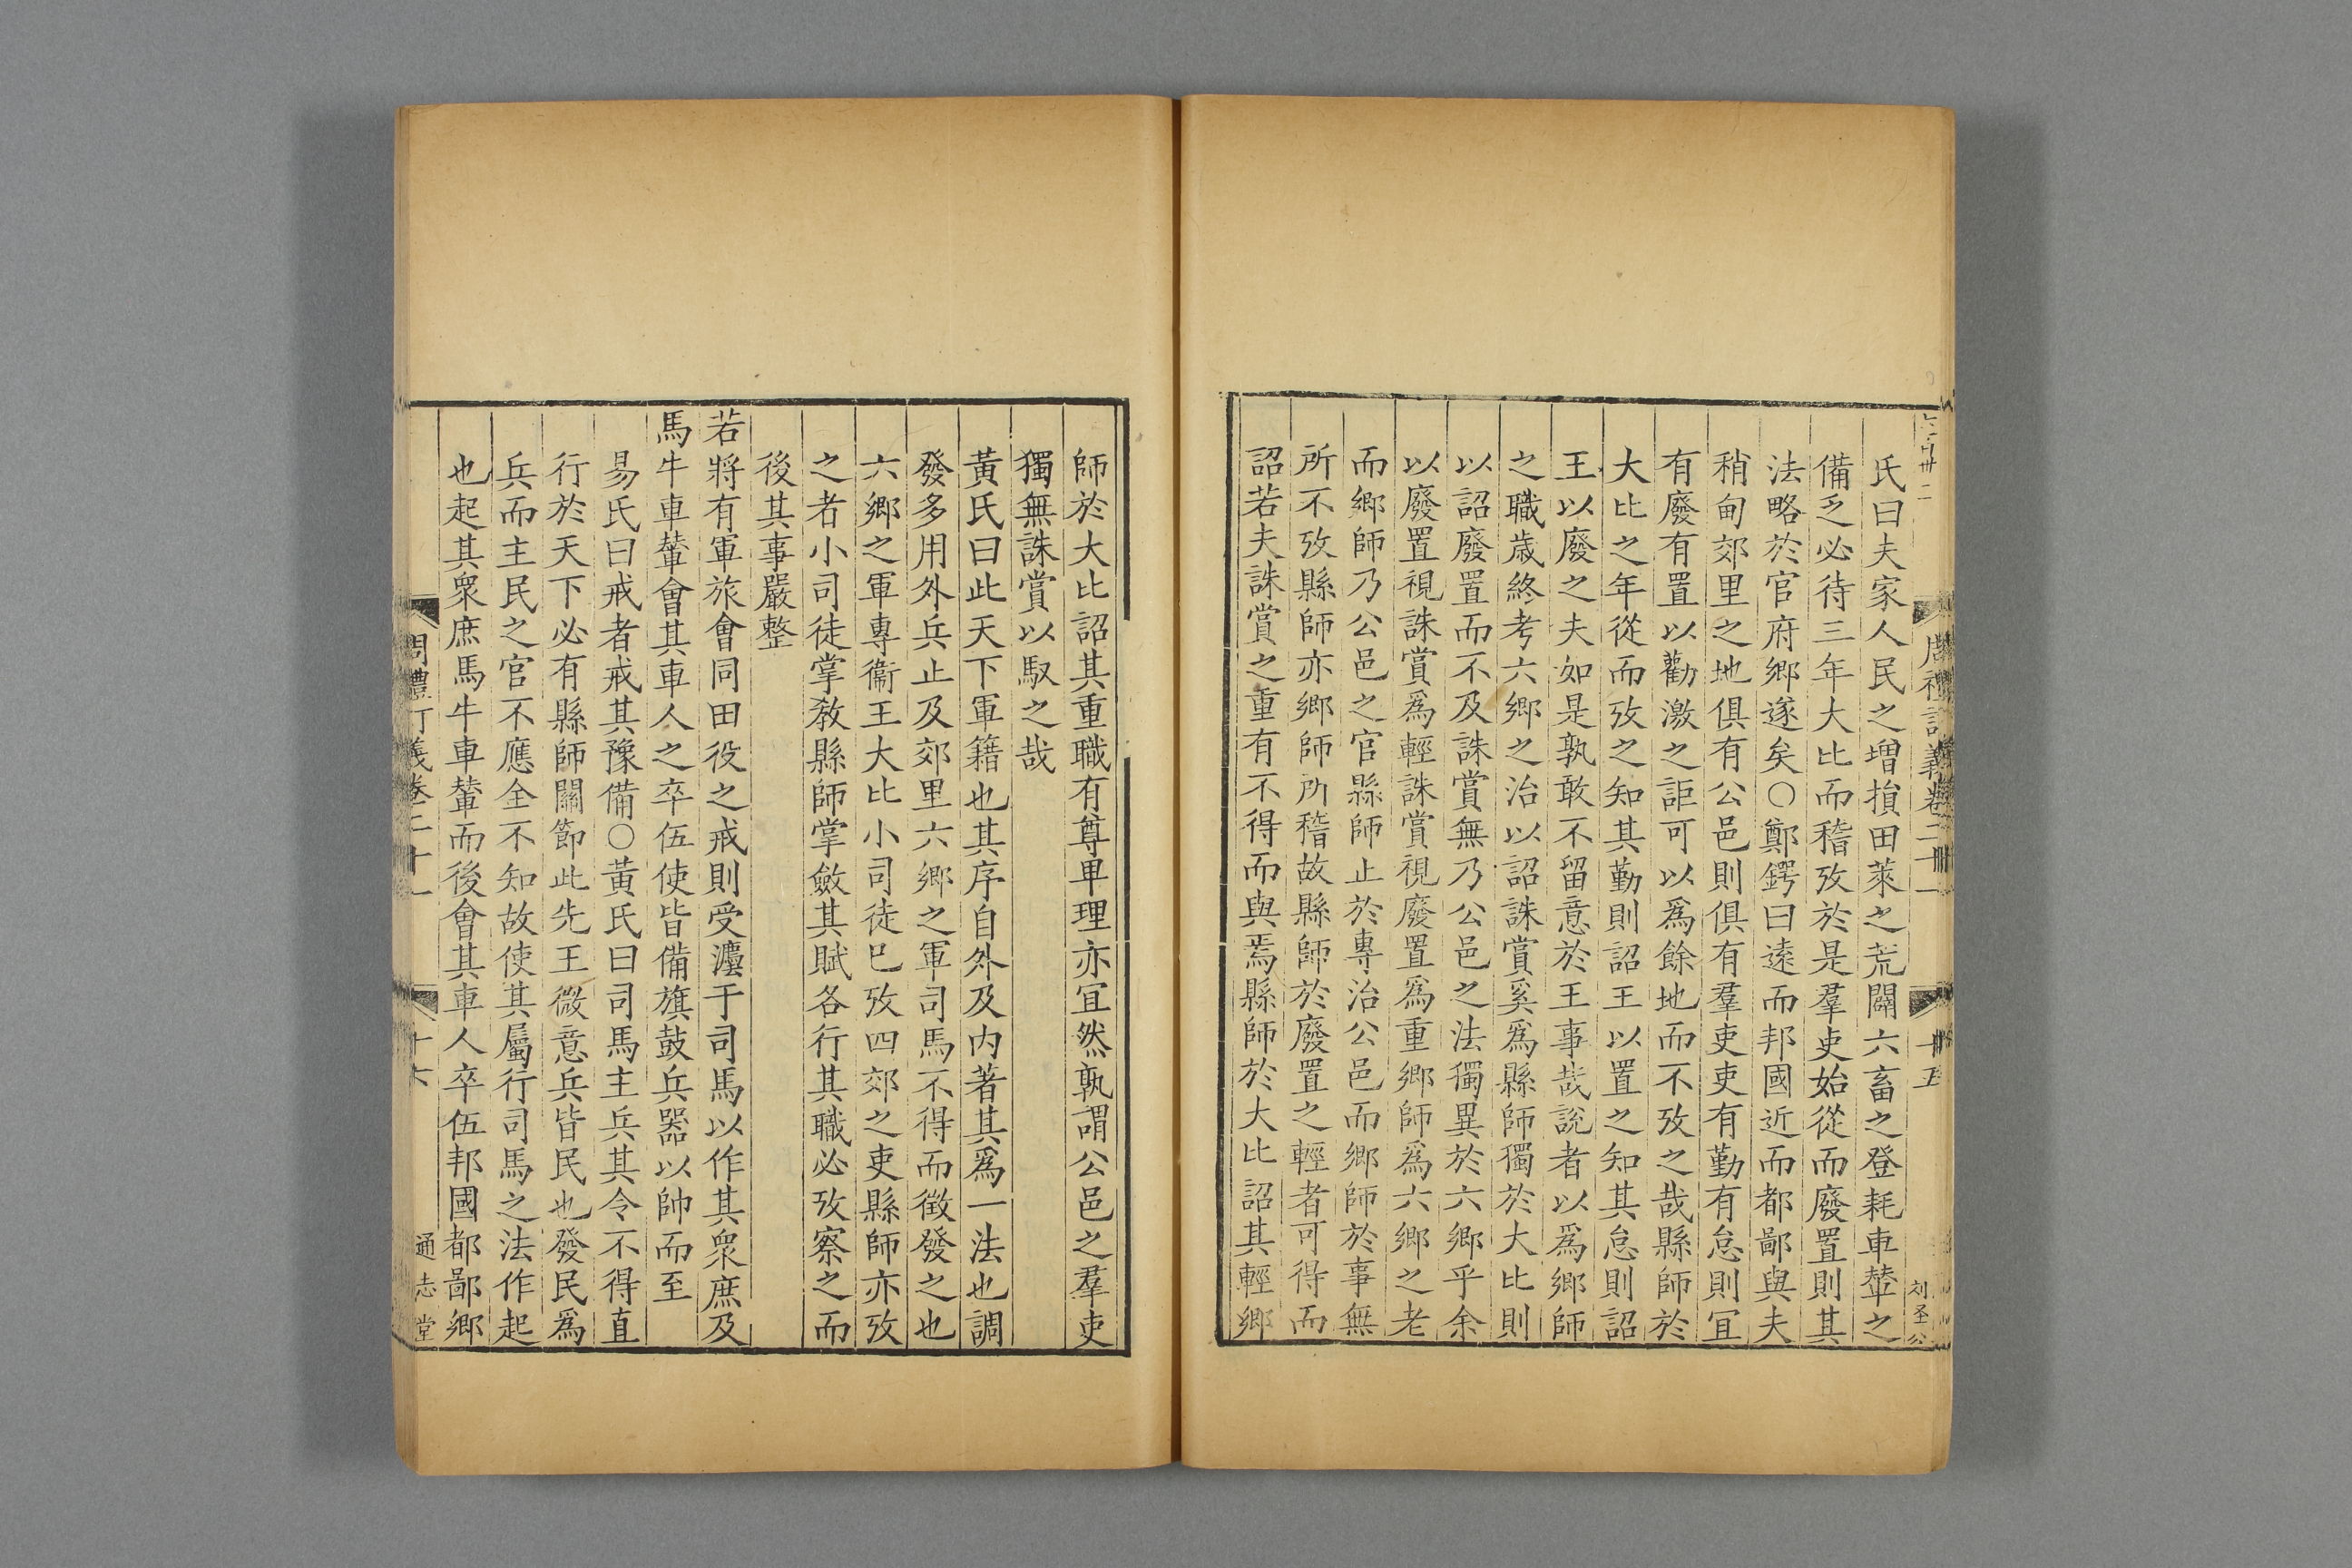 氏曰夫家人民之增損田萊之荒闢六畜之登耗車輦之
備乏必待三年大比而稽攷於是羣吏始從而廢置則其
法略於官府鄉遂矣○鄭鍔曰遠而邦國近而都鄙與夫
稍甸郊里之地俱有公邑則俱有羣吏吏有勤有怠則宜
有廢有置以勸激之詎可以爲餘地而不攷之哉縣師於
大比之年從而攷之知其勤則詔王以置之知其怠則詔
王以廢之夫如是孰敢不留意於王事哉說者以爲鄉師
之職歲終考六鄉之治以詔誅賞奚爲縣師獨於大比則
以詔廢置而不及誅賞無乃公邑之法獨異於六鄉乎余
以廢置視誅賞爲輕誅賞視廢置爲重鄉師爲六鄉之老
而鄉師乃公邑之官縣師止於專治公邑而鄉師於事無
所不攷縣師亦鄉師所稽故縣師於廢置之輕者可得而
詔若夫誅賞之重有不得而與焉縣師於大比詔其輕鄉
師於大比詔其重職有尊卑理亦宜然孰謂公邑之羣吏
獨無誅賞以馭之哉
黃氏曰此天下軍籍也其序自外及內著其爲一法也調
發多用外兵止及郊里六鄉之軍司馬不得而徵發之也
六鄉之軍專衞王大比小司徒巳攷四郊之吏縣師亦攷
之者小司徒掌敎縣師掌斂其賦各行其職必攷察之而
後其事嚴整
若將有軍旅會同田役之戒則受灋于司馬以作其衆庶及
馬牛車輦會其車人之卒伍使皆備旗鼓兵器以帥而至
易氏曰戒者戒其豫備○黃氏曰司馬主兵其令不得直
行於天下必有縣師關節此先王微意兵皆民也發民爲
兵而主民之官不應全不知故使其屬行司馬之法作起
也起其衆庶馬牛車輦而後會其車人卒伍邦國都鄙鄉
周禮訂義卷二十一
十六
通志堂